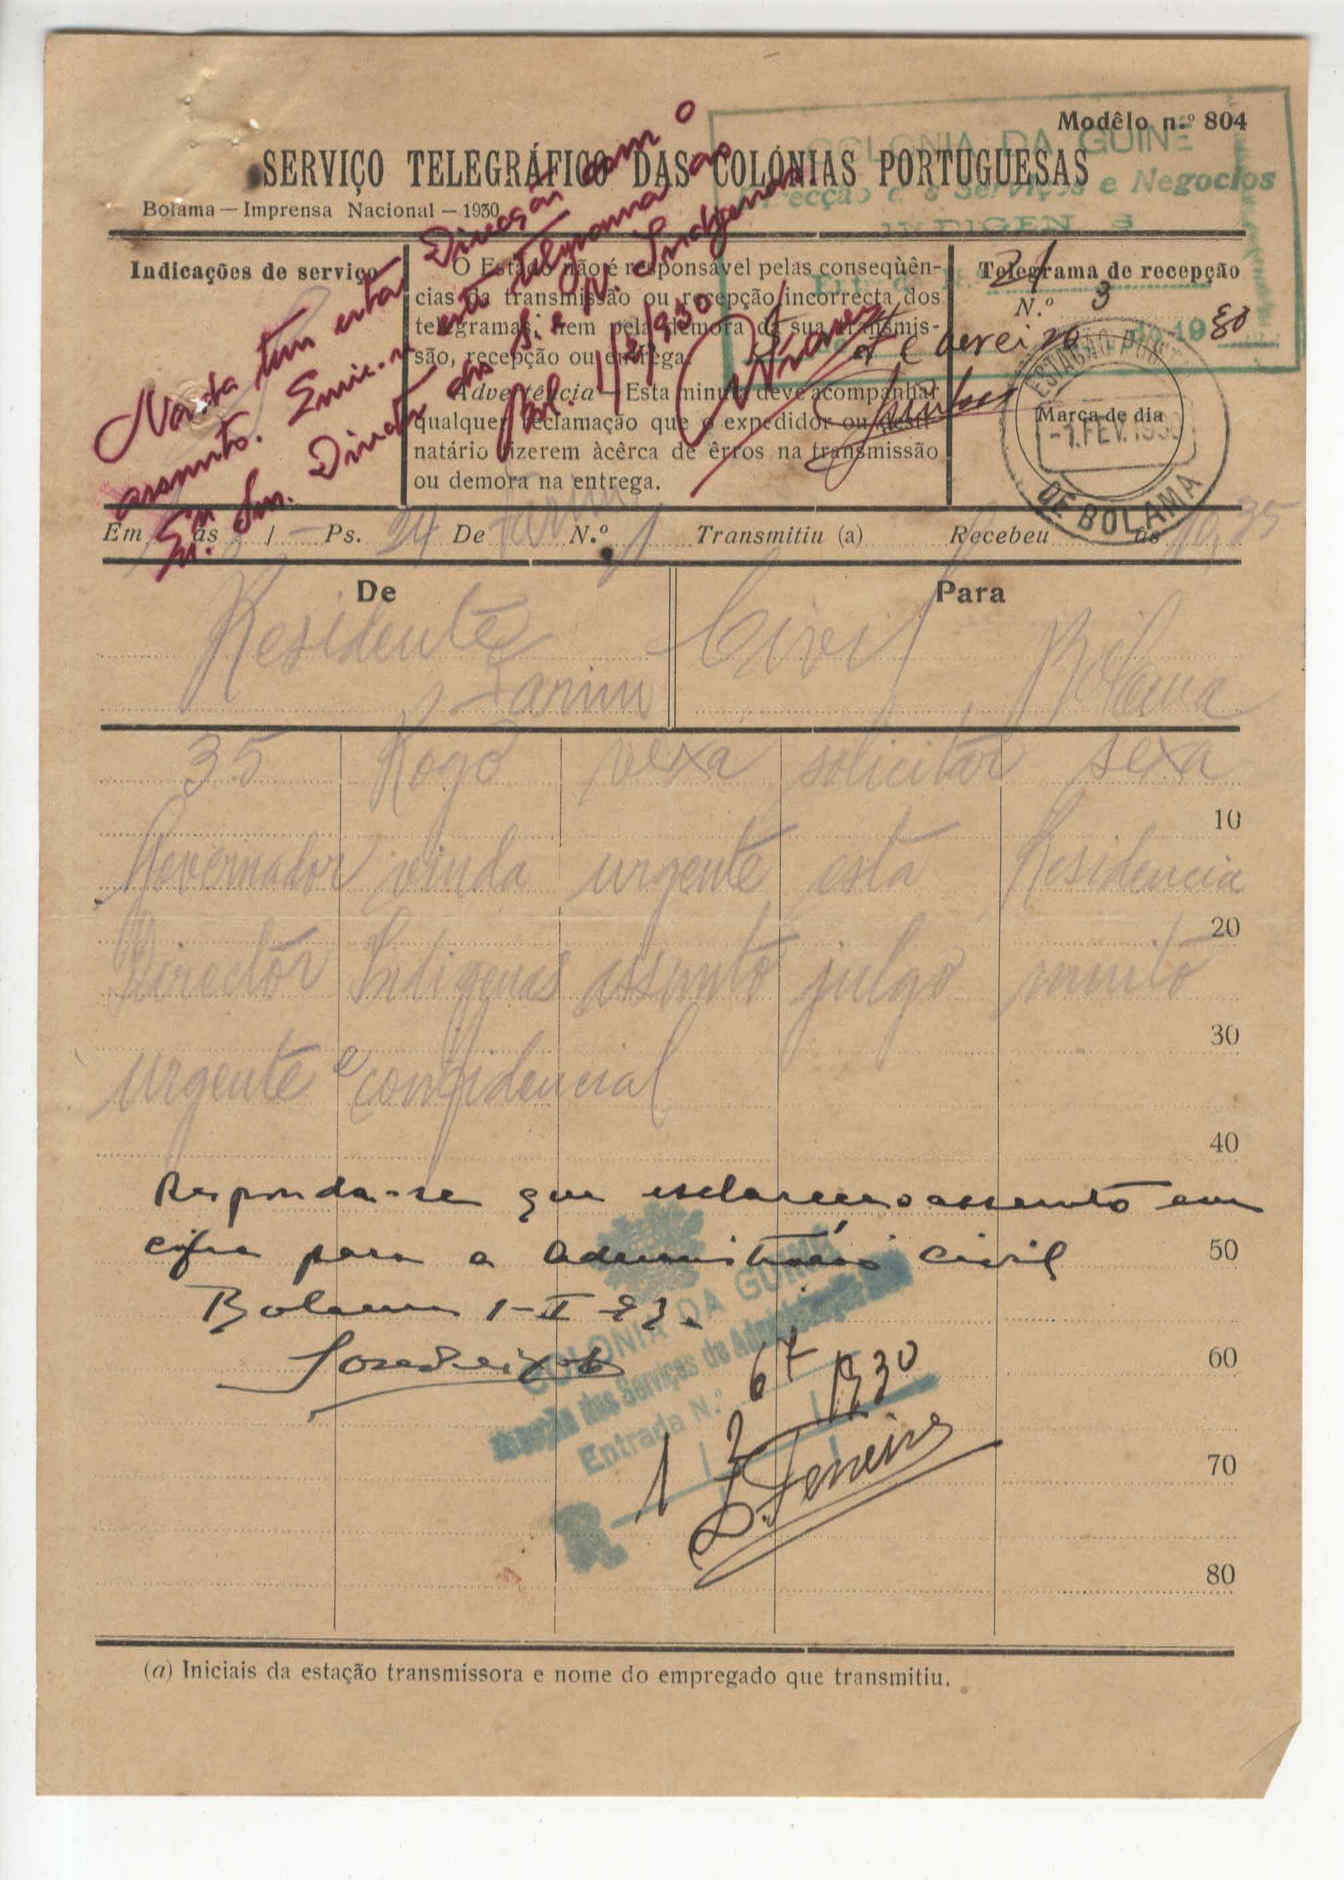 Modêlo n.º 804
COLONIA DA GUINE
SERVIÇO TELEGRÁFICO DAS COLÓNIAS PORTUGUESAS
Serviços e Negocios
Bolama — Imprensa Nacional — 1930
INDIGEN S
Nada tem esta Direcção com o
assunto. Envie-se este telegrama ao
Ex. Snr. Director dos S. e N. Indigenas
Bol. 1/2/930
Indicações de serviço
O Estado não é responsável pelas conseqùên-
cias da transmissão ou recepção incorrecta dos
telegramas, nem pela demora da sua transmis-
são, recepção ou entrega.
Advertência — Esta minuta deve acompanhar
qualquer reclamação que o expedidor ou desti-
natário fizerem àcêrca de êrros na transmissão
ou demora na entrega.
Telegrama de recepção
N.º 3
21
1 Fevereiro de 1930
ESTAÇÃO
Marca de dia
-1.FEV.193
DE BOLAMA
Em às / Ps. 24 De Farim N.º 1 Transmitiu (a) Recebeu às 10,35
De
Para
Residente
Farim
Civil
Bolama
35 Rogo vexa solicitar sexa
10
Governador vinda urgente esta Residencia
20
Director Indigenas assunto julgo muito
30
urgente e confidencial
40
Responda-se que esclareça o assunto em
cifra para a Administração Civil
50
Bolama 1-II-
COLONIA DA GUINÉ
dos Serviços de Administração
60
Entrada N.º 67
1 2 1930
R
L. Ferreira
70
80
(a) Iniciais da estação transmissora e nome do empregado que transmitiu.